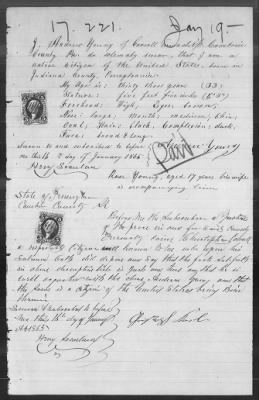 17.221. Jany 19-
I, Andrew Young of Carroll Cambria
County Pa. do solemnly swear, that I am a
native citizen of the United States, born in
Indiana County, Pennsylvania.
My Age is: thirty three years (33)
Stature: five feet five inches (5"5")
Forehead: High, Eyes: brown,
Nose: large, Mouth: medium, Chin:
Oval, Hair: black, Complexion: dark,
Face: broad &
Sworn to and subscribed to before
me this 16 day of January 1865
Henry Scanlan Young
Rose Young, aged 17 years his wife
is accompanying him
State of Pennsylvania
Cambria County SS
Before Me the Subscriber a Justice
of the Peace in and for said County
Personally came Christopher
a citizen known to me who upon his
Solemn oath did depose and say that the
in above description is just and true and that he is
well acquainted with the above Andrew Young and that
the same is a citizen of the United States being Born
therein
Sworn & subscribed to before
me this 16th day of January
AD 1865
Henry Scanlan